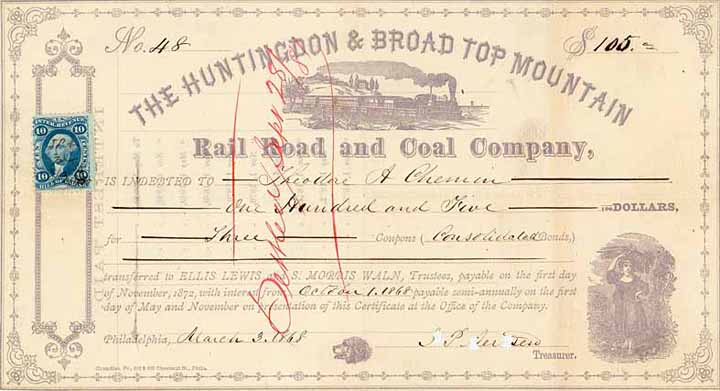 No. 48
$ 105.
THE HUNTINGDON & BROAD TOP MOUNTAIN
Rail Road and Coal Company,
IS INDEBTED TO Theodore A Chemin
One Hundred and Five DOLLARS,
for Three Coupons (Consolidated Bonds,)
transferred to ELLIS LEWIS and S. MORRIS WALN, Trustees, payable on the first day
of November, 1872, with interest from October 1. 1868 payable semi-annually on the first
day of May and November on presentation of this Certificate at the Office of the Company.
Philadelphia, March 3. 1868
Treasurer.
U.S. INTER. REVENUE
10 10
10